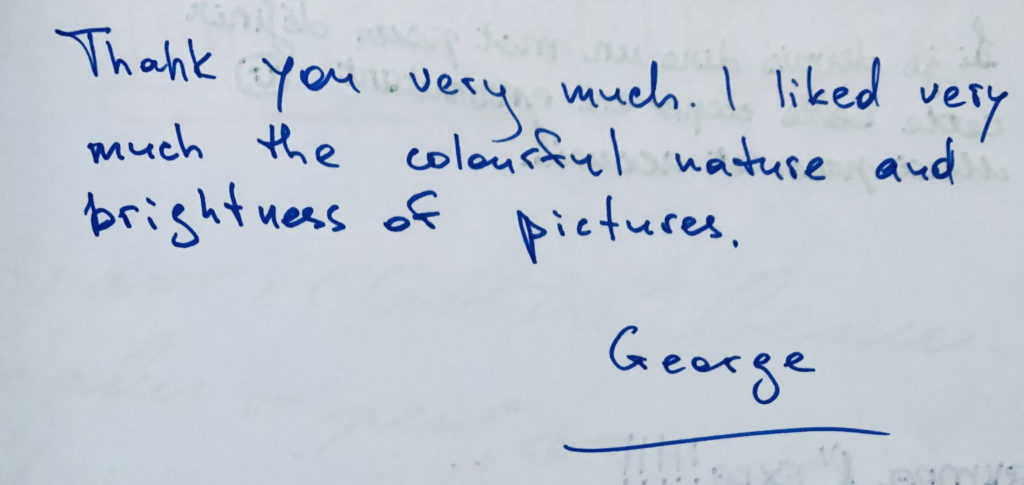 Thank you very much. I liked very
much the colourful nature and
brightness of pictures.
George